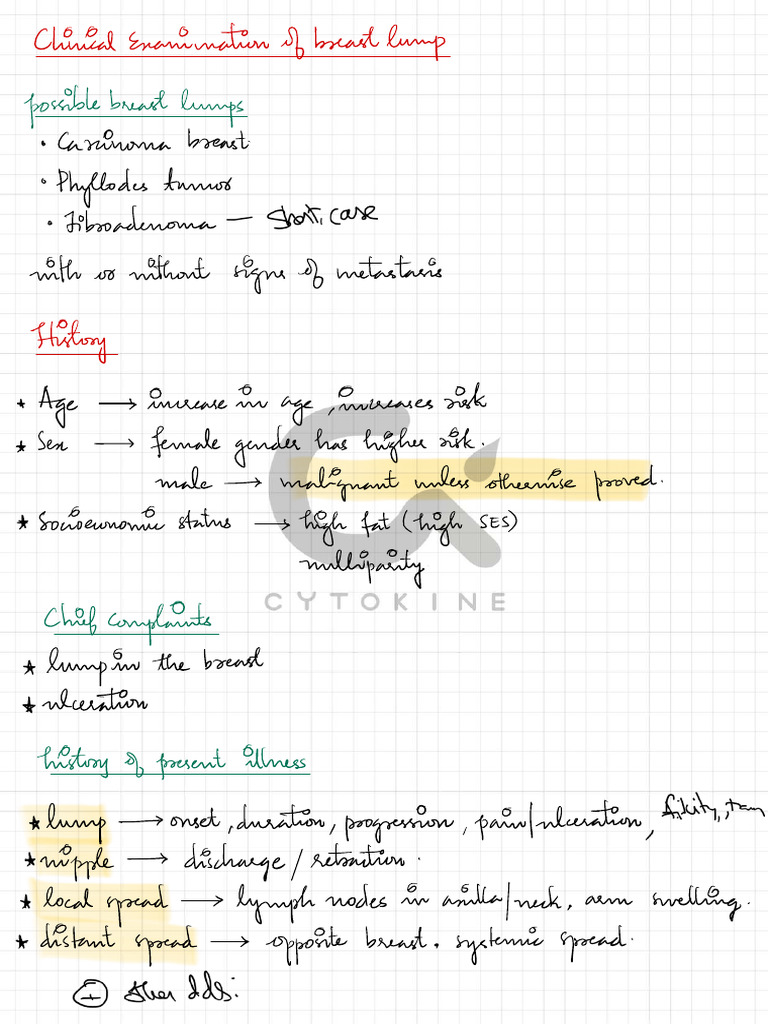 Clinical Examination of breast lump
possible breast lumps
• Carcinoma breast
• Phyllodes tumor
• Fibroadenoma — Short case
with or without signs of metastasis
History
★ Age → increase in age, increases risk
★ Sex → female gender has higher risk.
male → malignant unless otherwise proved.
★ Socioeconomic status → high fat (high SES)
nulliparity
CYTOKINE
Chief complaints
★ lump in the breast
★ ulceration
history of present illness
★ lump → onset, duration, progression, pain/ulceration,
★ nipple → discharge / retraction.
★ local spread → lymph nodes in axilla/neck, arm swelling.
★ distant spread → opposite breast. systemic spread.
other dds: